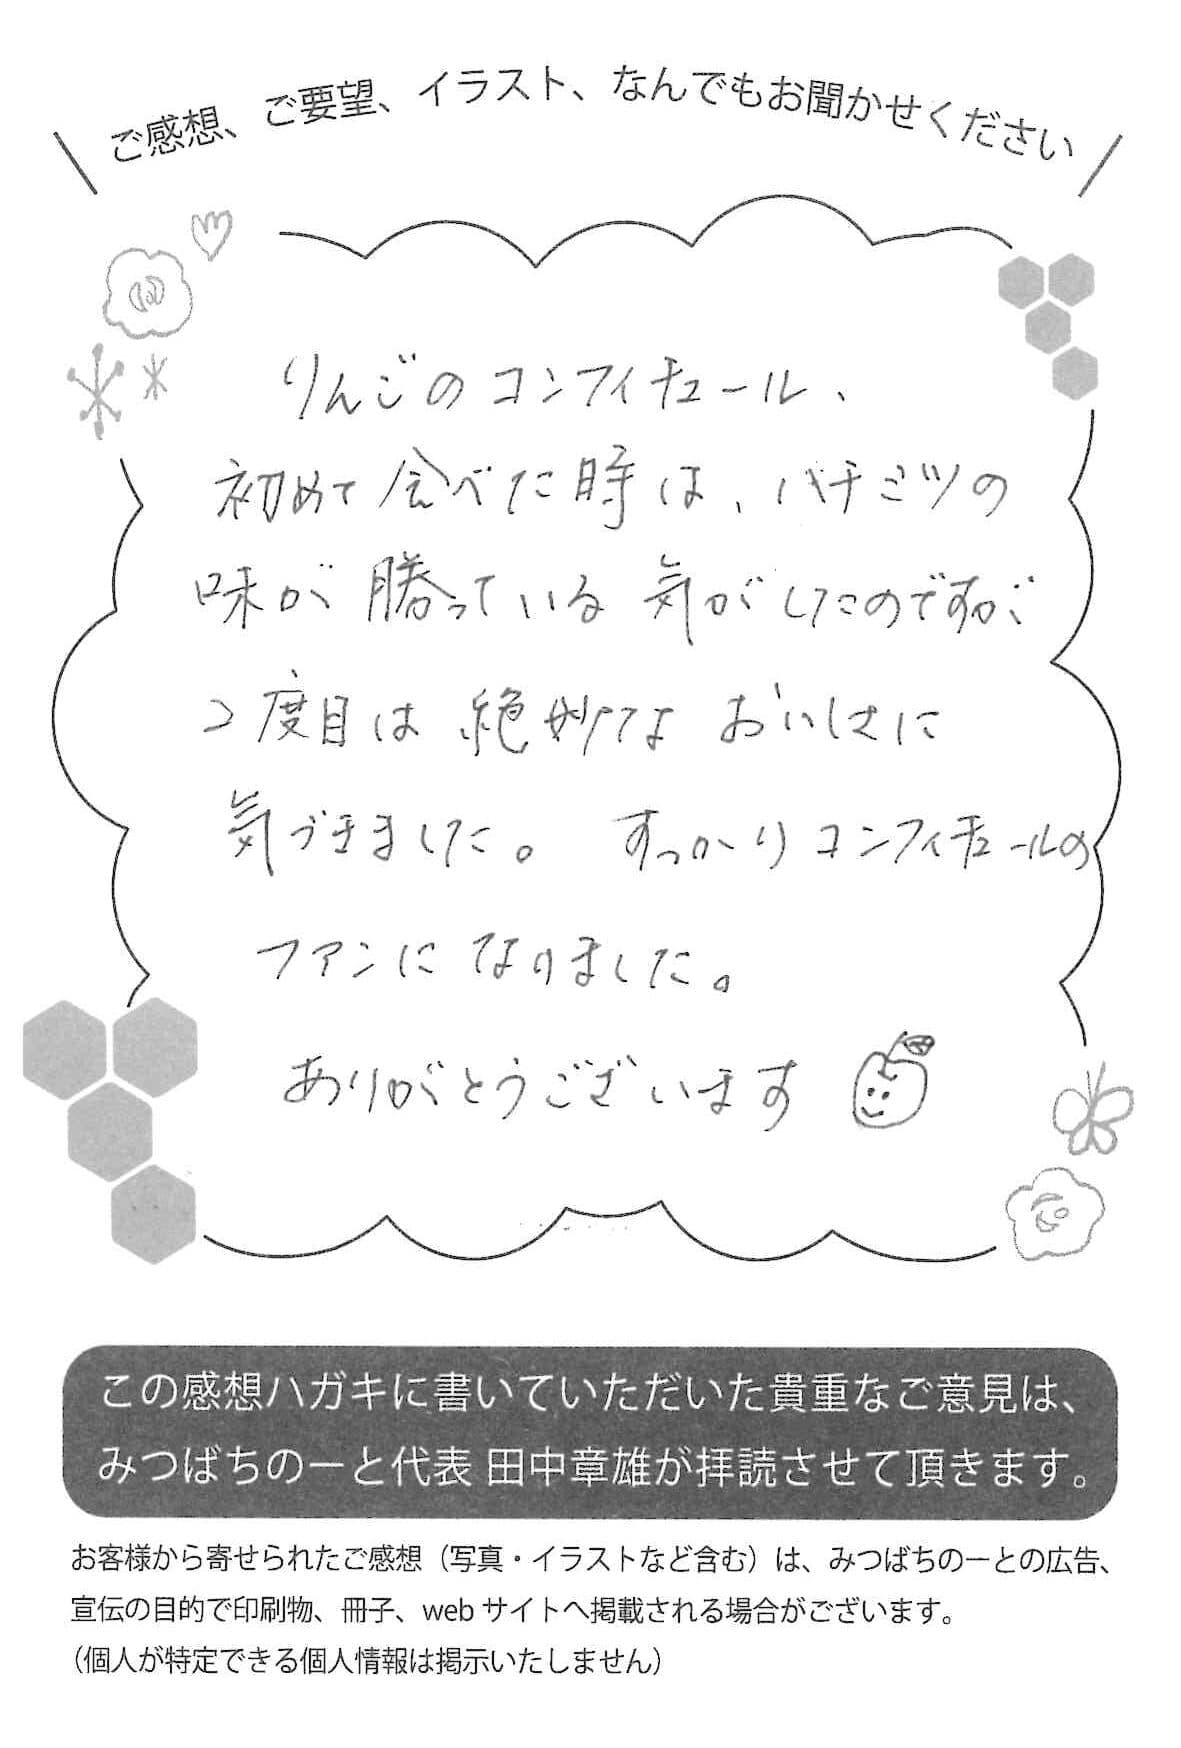 ご感想、ご要望、イラスト、なんでもお聞かせください
りんごのコンフィチュール、
初めて食べた時は、ハチミツの
味が勝っている気がしたのですが
2度目は絶妙なおいしさに
気づきました。すっかりコンフィチュールの
ファンになりました。
ありがとうございます
この感想ハガキに書いていただいた貴重なご意見は、
みつばちのーと代表 田中章雄が拝読させて頂きます。
お客様から寄せられたご感想（写真・イラストなど含む）は、みつばちのーとの広告、
宣伝の目的で印刷物、冊子、web サイトへ掲載される場合がございます。
（個人が特定できる個人情報は掲示いたしません）